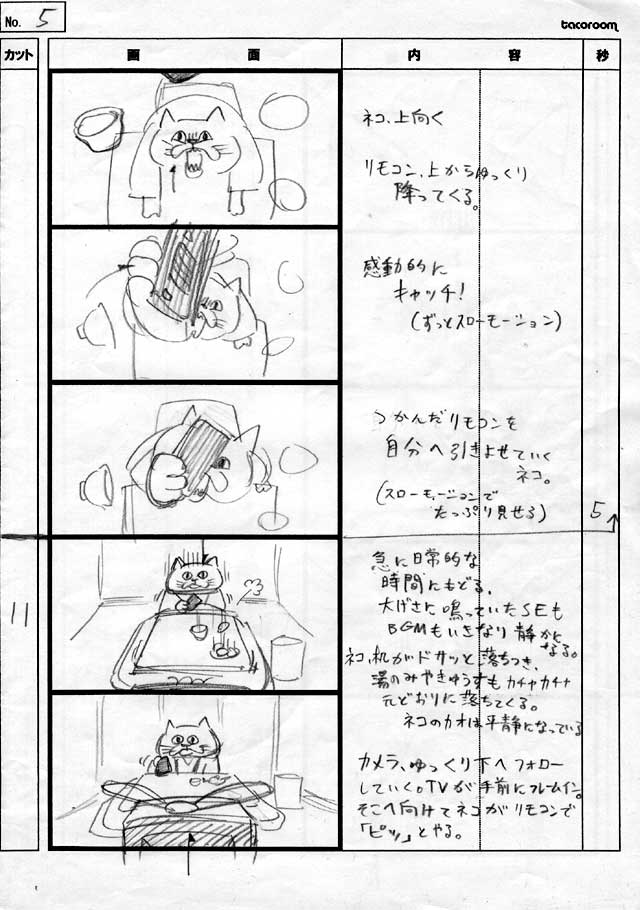 No. 5
tacoroom
カット
画 面
内 容
秒
ネコ、上向く
リモコン、上からゆっくり
降ってくる。
感動的に
キャッチ!
(ずっとスローモーション)
つかんだリモコンを
自分へ引きよせていく
ネコ。
(スローモーションで
たっぷり見せる)
5
11
急に日常的な
時間にもどる。
大げさに鳴っていたSEも
BGMもいきなり静かに
なる。
ネコ、机がドサッと落ちつき、
湯のみやきゅうすもカチャカチャ
元どおりに落ちてくる。
ネコのカオは平静になっている
カメラ、ゆっくり下へフォロー
していく。TVが手前にフレームイン。
そこへ向けてネコがリモコンで
「ピッ」とやる。